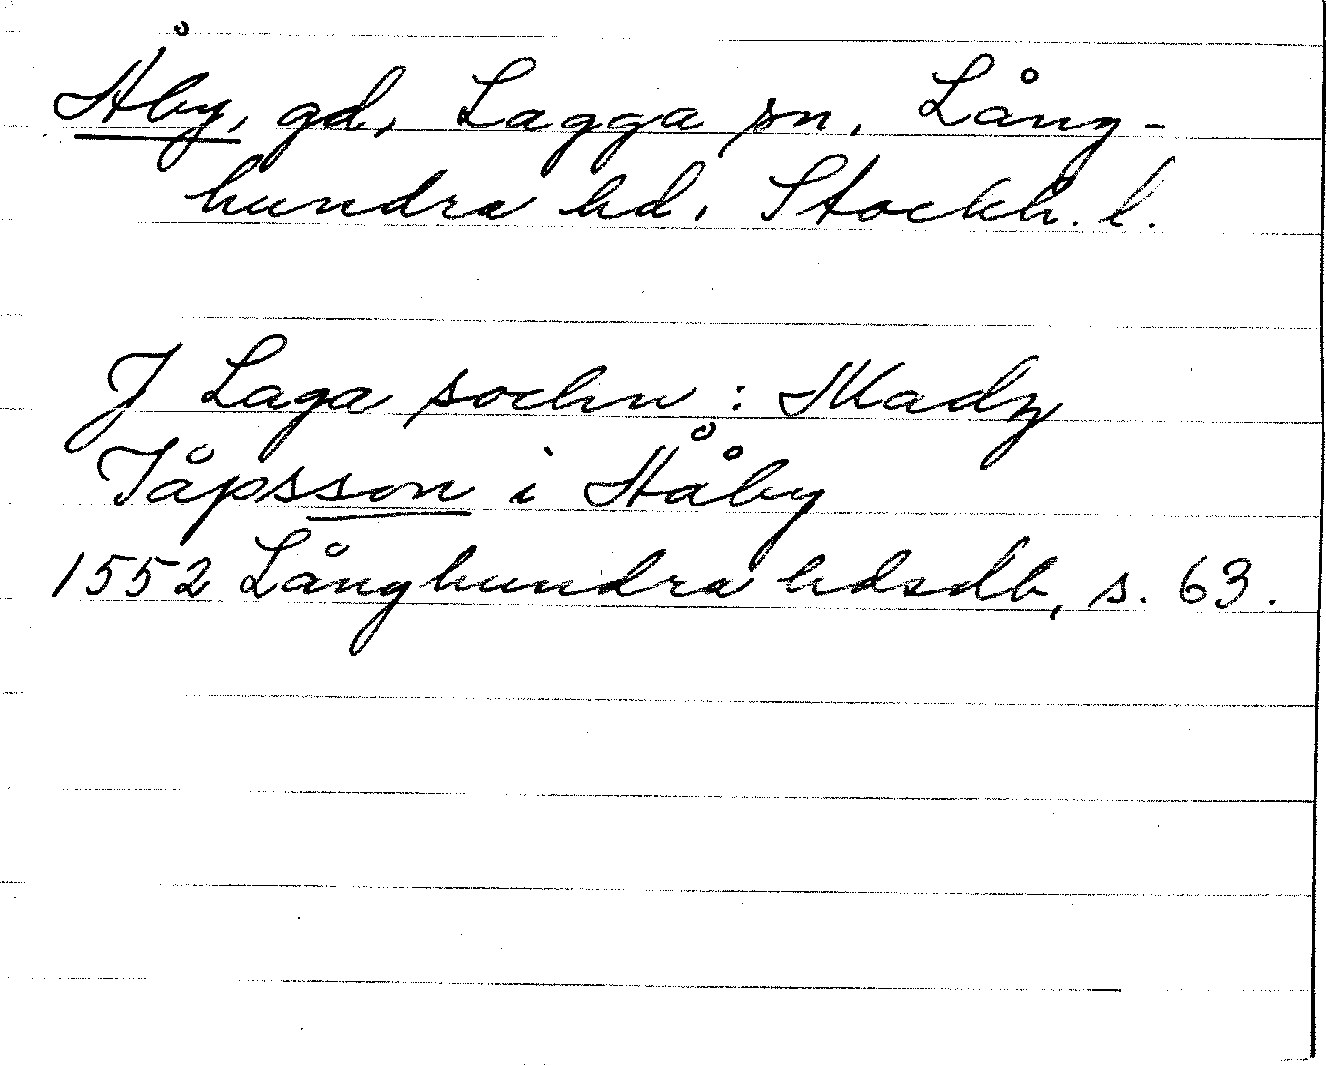 Åby, gd, Lagga sn, Lång-
hundra hd. Stockh. l.
J Laga sochn : Madz
Jåpsson i Ååby
1552 Långhundra hdsdb, s. 63.